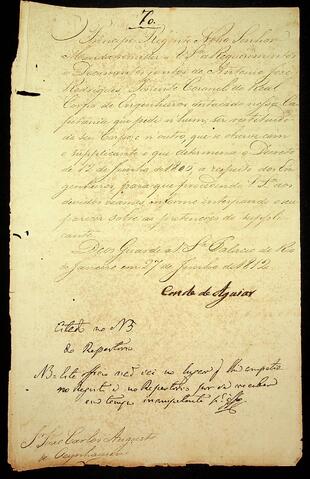 70.
O Principe Regente Nosso Senhor
Manda remetter a V. S.ª o Requerimento
e Documentos juntos de Antonio José
Rodrigues, Tenente Coronel do Real
Corpo de Engenheiros destacado nessa Ca
pitania que pede num, ser restituido
ao seu Corpo, e n'outro, que se observe com
o supplicante o que determina o Decreto
de 12 de Junho de a respeito dos En
genheiros; para que procedendo V. S.ª aos
devidos exames, informe interpondo o seu
parecer sobre as pretenções do suppli
cante.
Deos Guarde a V. S.ª Palacio do Rio
de Janeiro em 27 de Junho de 1812.
Conde de Aguiar
no N
do Repertorio
NB Este officio não vai no lugar q lhe competia
no Registo e no Repertorio por se receber
em tempo incompetente
S.r José Carlos Augusto
de Oeynhausen